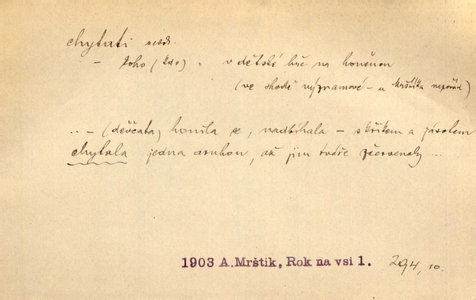 chytati nedok.
– koho (kdo) v dětské hře na honěnou
(ve shodě významové – u Mrštíka
.. – (děvčata) honila se, nadbíhala – s křikem a jásotem
chytala jedna druhou, až jim tváře zčervenaly...
1903 A. Mrštík, Rok na vsi 1. 294, 10.